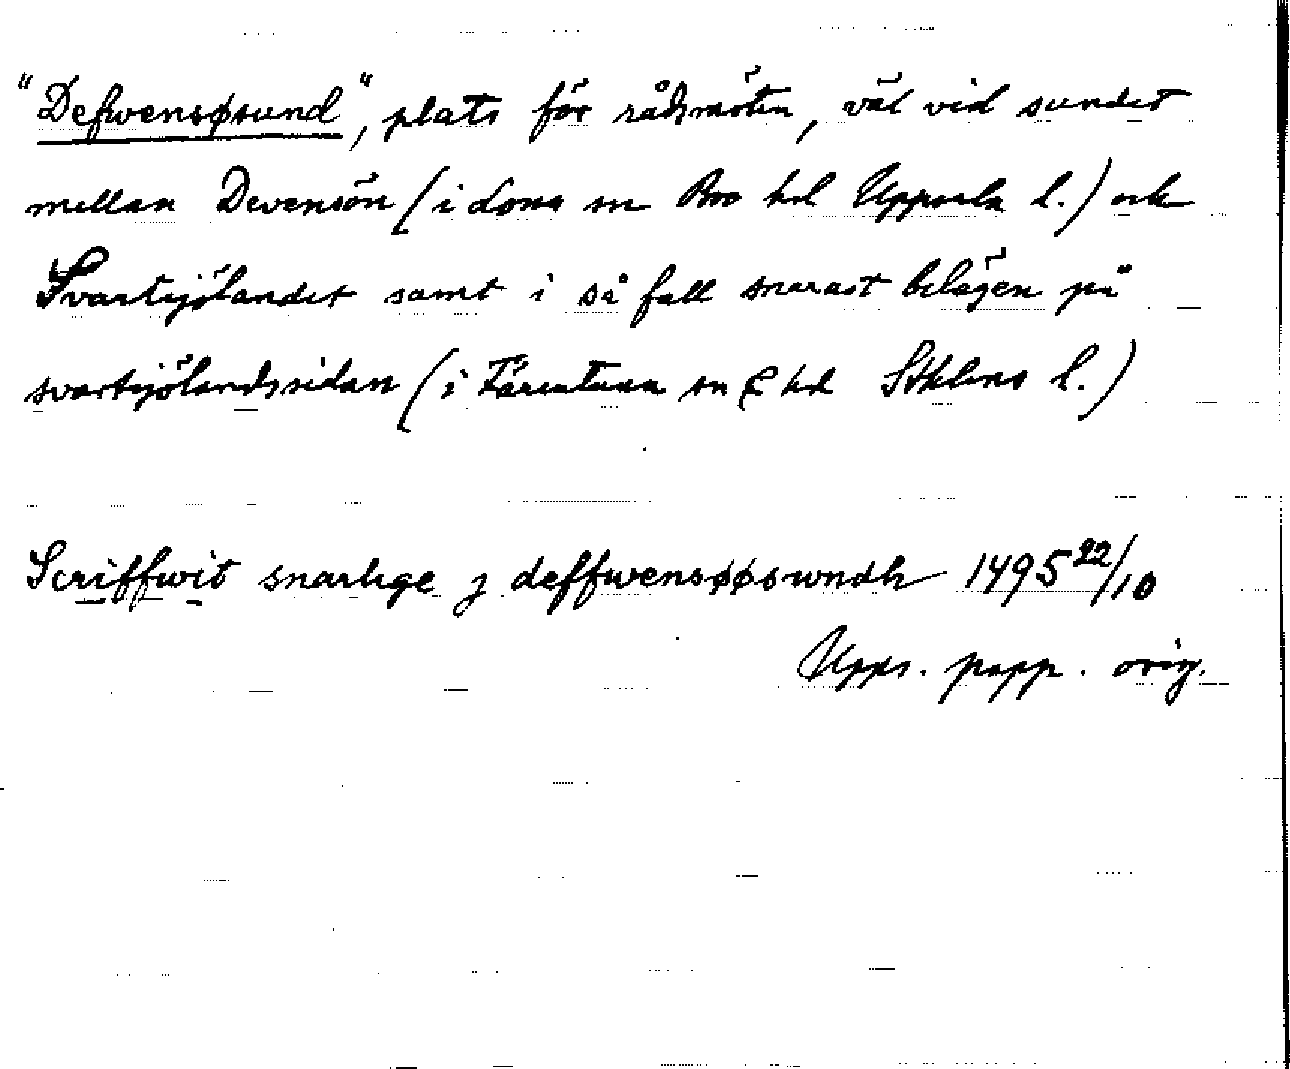 "Defwensøsund", plats för rådsmöten, väl vid sundet
mellan Devensön (i Låssa sn Bro hd Uppsala l.) och
Svartsjölandet samt i så fall snarast belägen på
svartsjölandssidan (i Färentuna sn & hd Sthlms l.)
Scriffwit snarlige j deffwensøøswndh 1495 22/10
Upps. papp. orig.